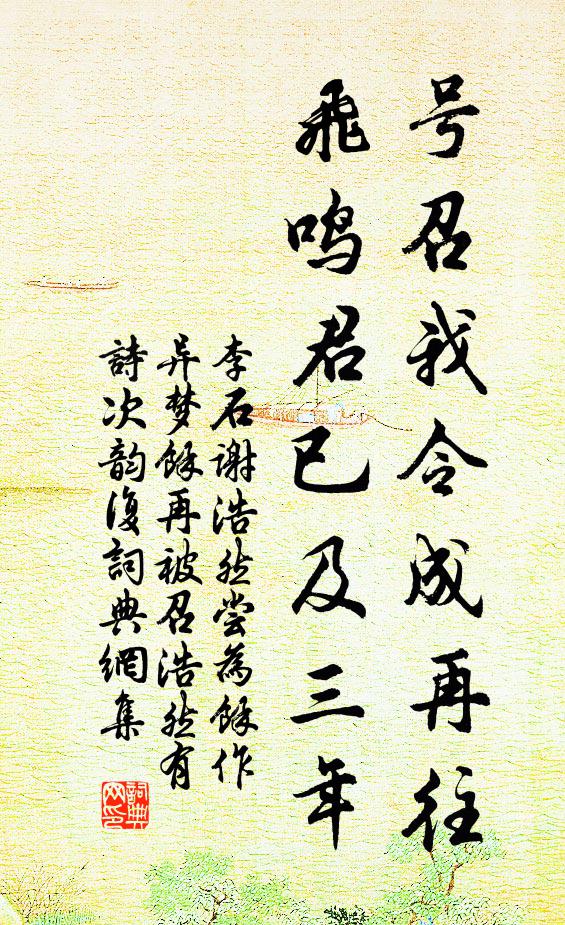 号召我令成再往
飛鳴君已及三年
李石谢浩然尝為餘作
异梦餘再被召浩然有
詩次韵復詞典網集
詞典网印